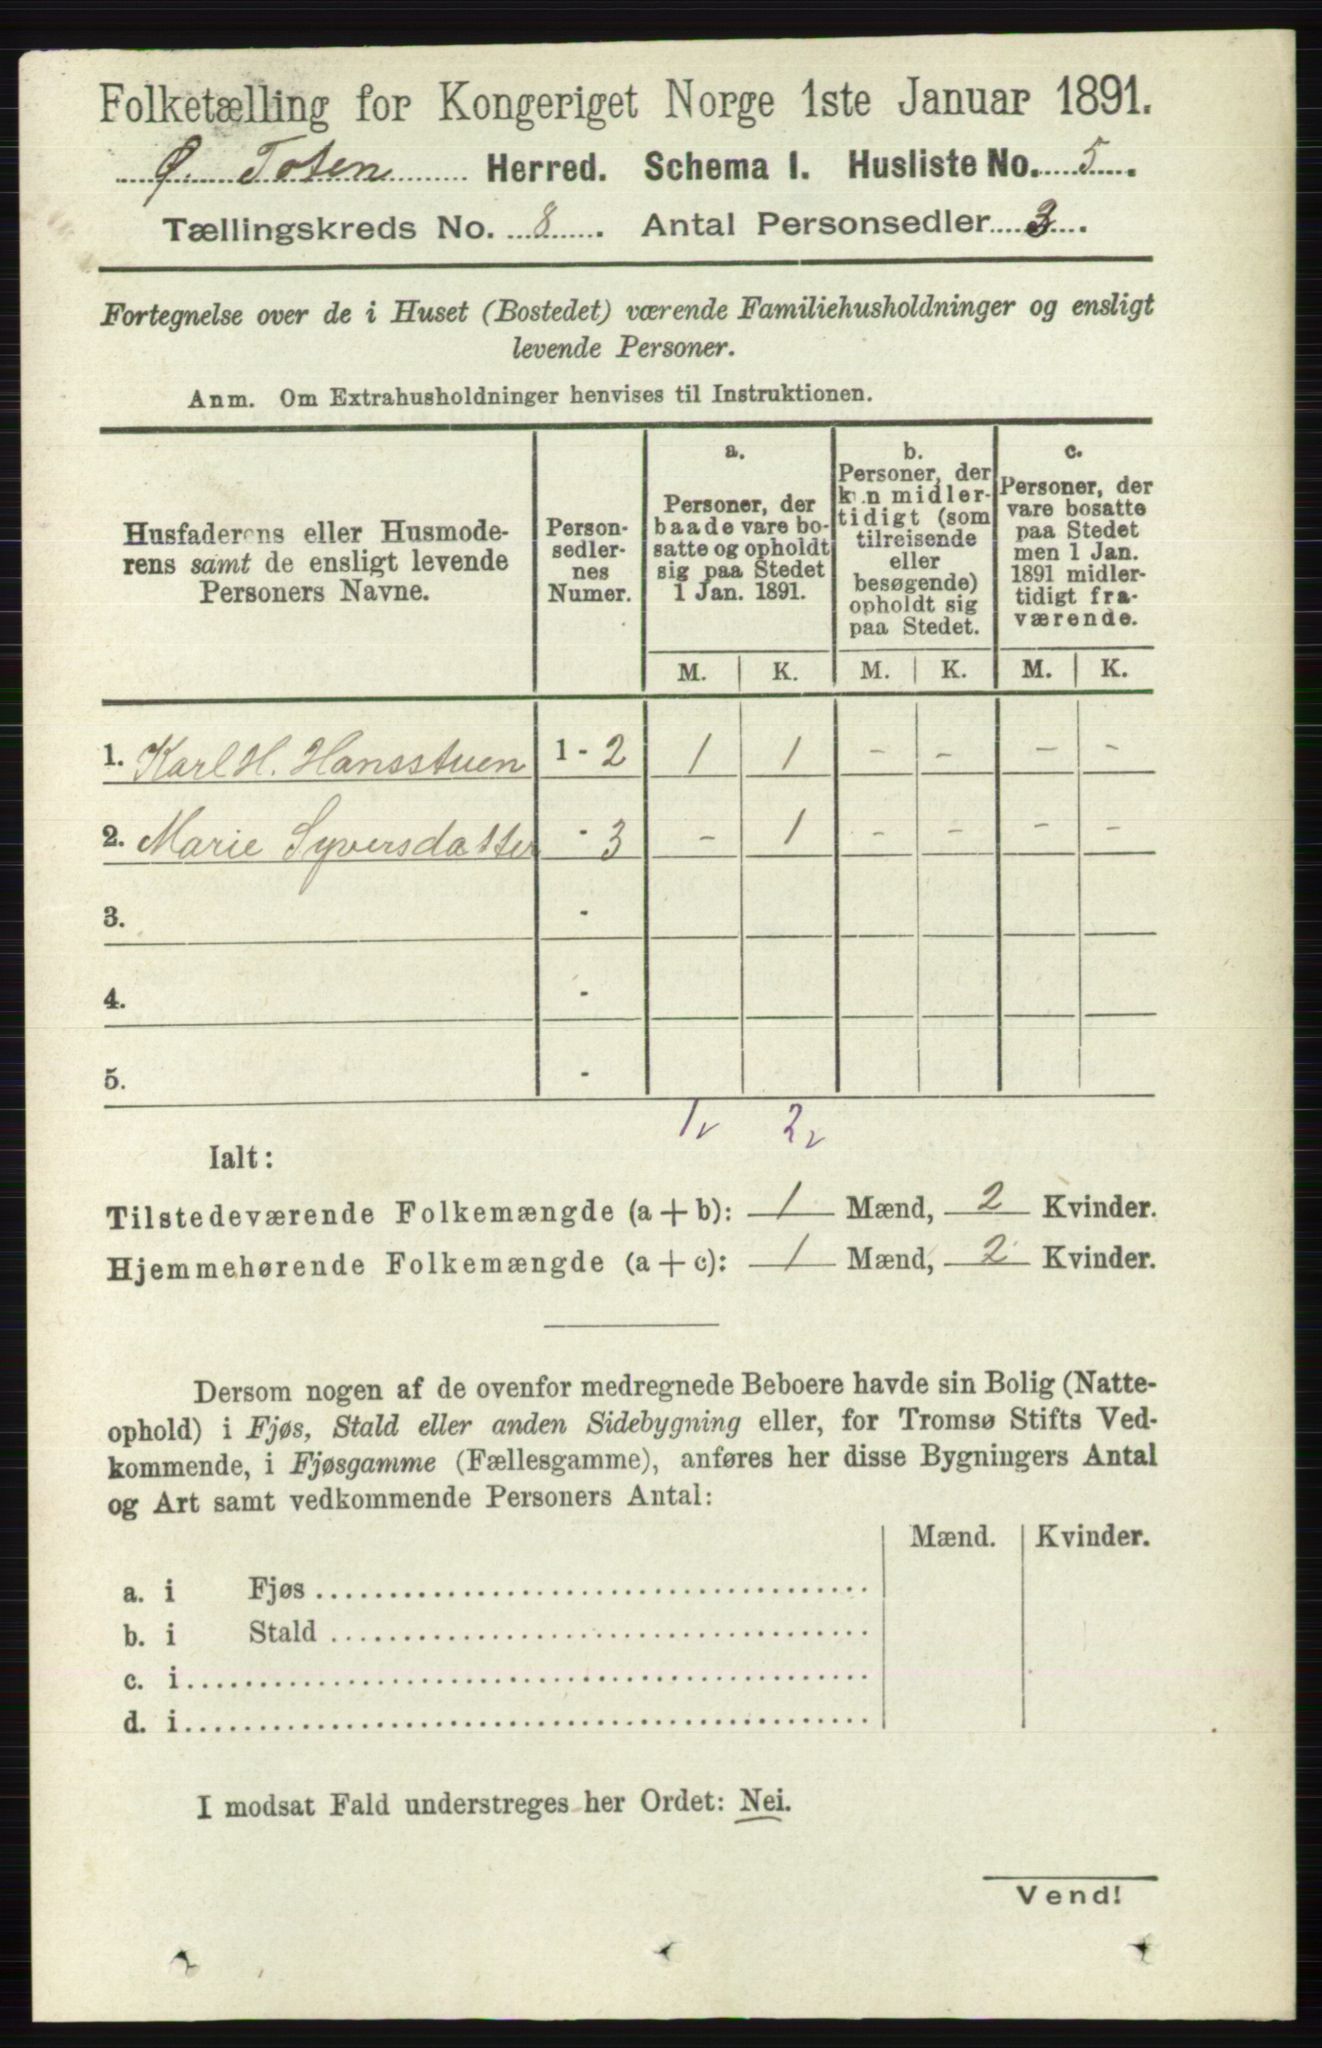 Folketælling for Kongeriget Norge 1ste Januar 1891.
Ø. Toten Herred. Schema I. Husliste No. 5.
Tællingskreds No. 8. Antal Personsedler 3.
Fortegnelse over de i Huset (Bostedet) værende Familiehusholdninger og ensligt
levende Personer.
Anm. Om Extrahusholdninger henvises til Instruktionen.
Husfaderens eller Husmode-
rens samt de ensligt levende
Personers Navne.
Person-
sedler-
nes
Numer.
a.
Personer, der
baade vare bo-
satte og opholdt
sig paa Stedet
1 Jan. 1891.
b.
Personer, der
kun midler-
tidigt (som
tilreisende
eller
besøgende)
opholdt sig
paa Stedet.
c.
Personer, der
vare bosatte
paa Stedet
men 1 Jan.
1891 midler-
tidigt fra-
værende.
M. K. M. K. M. K.
1. Karl H. Hansstuen 1 - 2 1 1 - - - -
2. Marie Syversdatter - 3 - 1 - - - -
3. -
4. -
5. -
1 v 2 v
Ialt:
Tilstedeværende Folkemængde (a + b): 1 Mænd, 2 Kvinder.
Hjemmehørende Folkemængde (a + c): 1 Mænd, 2 Kvinder.
Dersom nogen af de ovenfor medregnede Beboere havde sin Bolig (Natte-
ophold) i Fjøs, Stald eller anden Sidebygning eller, for Tromsø Stifts Ved-
kommende, i Fjøsgamme (Fællesgamme), anføres her disse Bygningers Antal
og Art samt vedkommende Personers Antal:
Mænd. Kvinder.
a. i Fjøs
b. i Stald
c. i
d. i
I modsat Fald understreges her Ordet: Nei.
Vend!